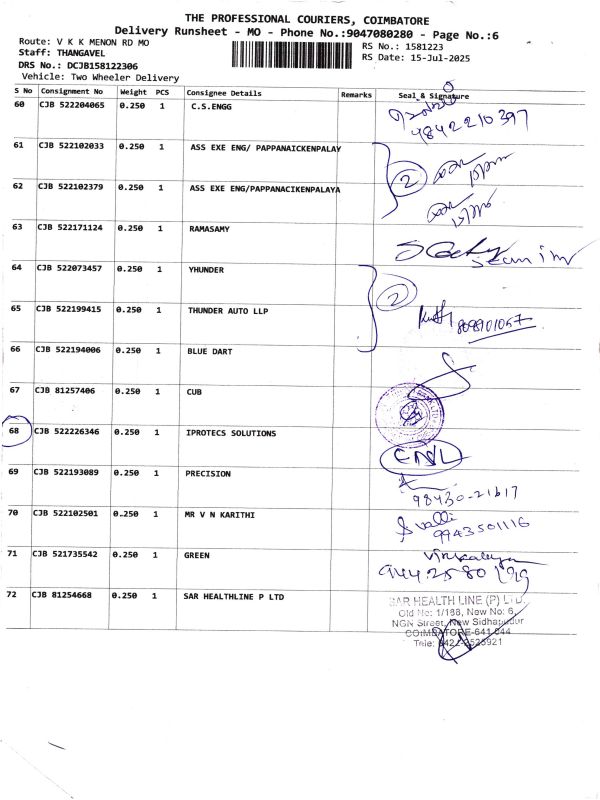 THE PROFESSIONAL COURIERS, COIMBATORE
Delivery Runsheet - MO - Phone No.:9047080280 - Page No.:6
Route: V K K MENON RD MO
RS No.: 1581223
Staff: THANGAVEL
RS Date: 15-Jul-2025
DRS No.: DCJB158122306
Vehicle: Two Wheeler Delivery
S No Consignment No Weight PCS Consignee Details Remarks Seal & Signature
60 CJB 522204065 0.250 1 C.S.ENGG
4842210397
61 CJB 522102033 0.250 1 ASS EXE ENG/ PAPPANAICKENPALAY
2
62 CJB 522102379 0.250 1 ASS EXE ENG/PAPPANACIKENPALAYA
63 CJB 522171124 0.250 1 RAMASAMY
64 CJB 522073457 0.250 1 YHUNDER
2
65 CJB 522199415 0.250 1 THUNDER AUTO LLP
66 CJB 522194006 0.250 1 BLUE DART
67 CJB 81257406 0.250 1 CUB
68 CJB 522226346 0.250 1 IPROTECS SOLUTIONS
69 CJB 522193089 0.250 1 PRECISION
98430-21617
70 CJB 522102501 0.250 1 MR V N KARITHI
S valli
9943501116
71 CJB 521735542 0.250 1 GREEN
72 CJB 81254668 0.250 1 SAR HEALTHLINE P LTD
SAR HEALTH LINE (P) LTD.
Old No: 1/188, New No: 6,
NGN Street, New Sidhapudur
COIMBATORE-641 044
Tele: 0422-2525921